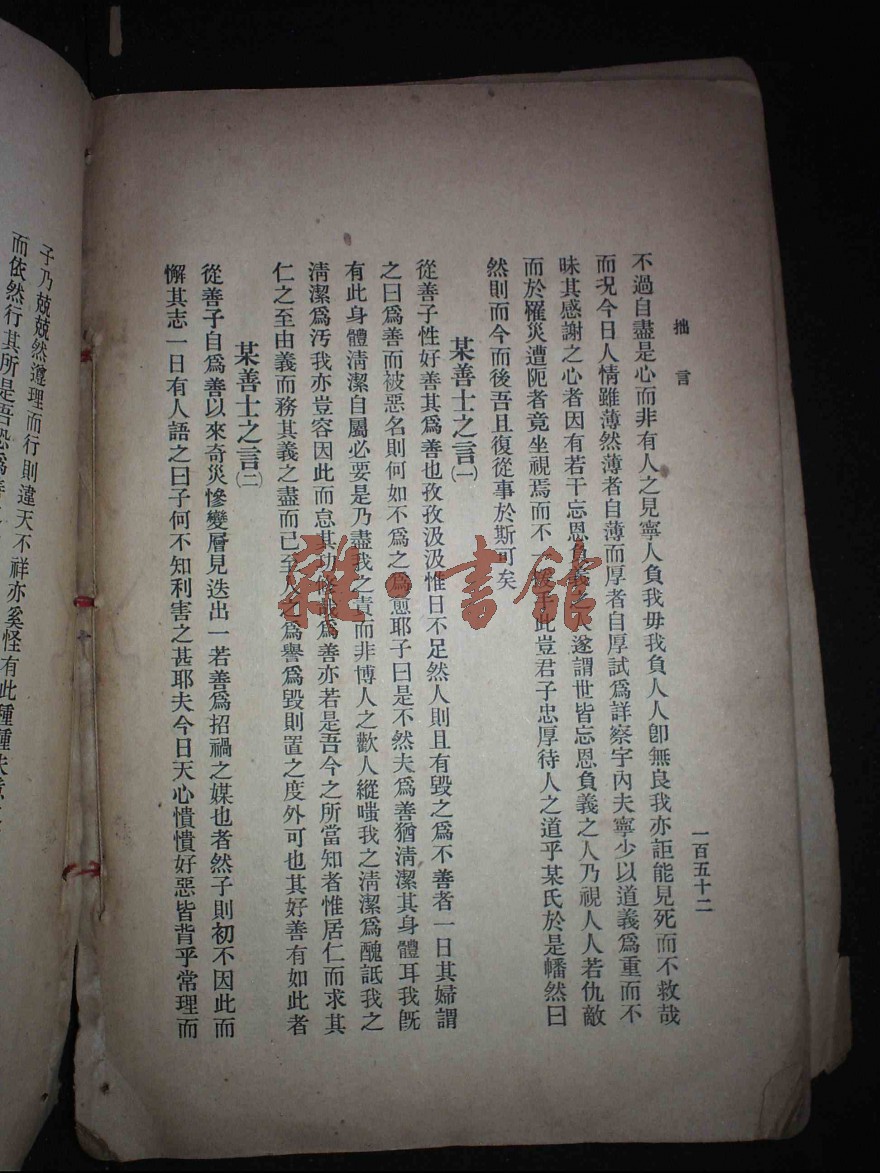 拙言
一百五十二
不過自盡是心而非有人之見寧人負我毋我負人人卽無良我亦詎能見死而不救哉
而況今日人情雖薄然薄者自薄而厚者自厚試爲詳察宇內夫寧少以道義爲重而不
昧其感謝之心者因有若干忘恩負義之人遂謂世皆忘恩負義之人乃視人人若仇敵
而於罹災遭阨者竟坐視焉而不一援手此豈君子忠厚待人之道乎某氏於是幡然曰
然則而今而後吾且復從事於斯可矣
某善士之言(一)
從善子性好善其爲善也孜孜汲汲惟日不足然人則且有毀之爲不善者一日其婦謂
之曰爲善而被惡名則何如不爲之爲愈耶子曰是不然夫爲善猶淸潔其身體耳我旣
有此身體淸潔自屬必要是乃盡我之責而非博人之歡人縱嗤我之淸潔爲醜詆我之
淸潔爲汚我亦豈容因此而怠其功修哉爲善亦若是吾今之所當知者惟居仁而求其
仁之至由義而務其義之盡而已至人之爲譽爲毀則置之度外可也其好善有如此者
某善士之言(二)
從善子自爲善以來奇災慘變層見迭出一若善爲招禍之媒也者然子則初不因此而
懈其志一日有人語之曰子何不知利害之甚耶夫今日天心憒憒好惡皆背乎常理而
子乃兢兢然遵理而行則違天不祥亦奚怪有此種種
而依然行其所是吾恐爲善
雜·書館